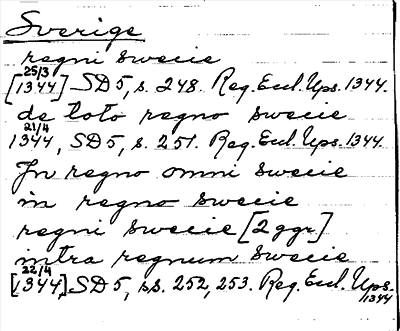 Sverige
regni swecie
[25/3 1344] SD5, s. 248. Reg. Eccl. Ups. 1344.
de toto regno swecie
21/4 1344, SD5, s. 251. Reg. Eccl. Ups. 1344.
In regno omni swecie
in regno swecie
regni swecie [2 ggr]
intra regnum swecie
[22/4 1344,] SD5, ss. 252, 253. Reg. Eccl. Ups. 1344